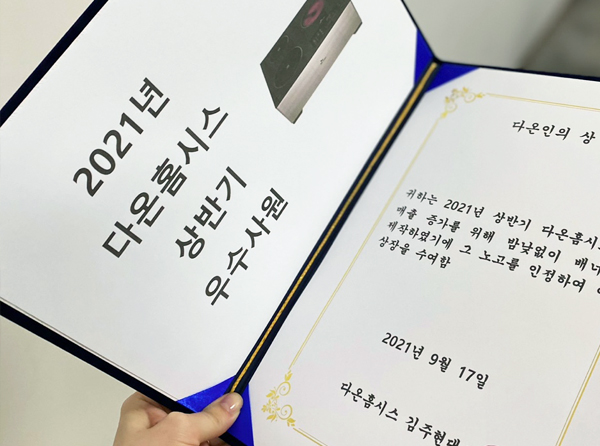 2021년
다온홈시스
상반기
우수사원
다온인의 상
귀하는 2021년 상반기 다온홈시스
매출 증가를 위해 밤낮없이 배너
제작하였기에 그 노고를 인정하여
상장을 수여함
2021년 9월 17일
다온홈시스 김주현